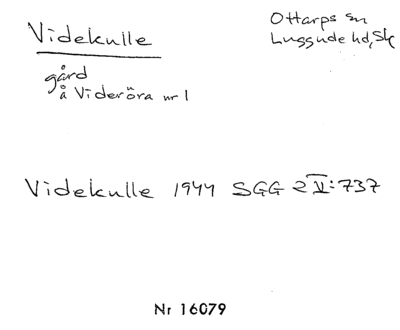 Videkulle
Ottarps sn
Luggude hd, Sk
gård
å Videröra nr 1
Videkulle 1944 SGG 2 V:737
Nr 16079